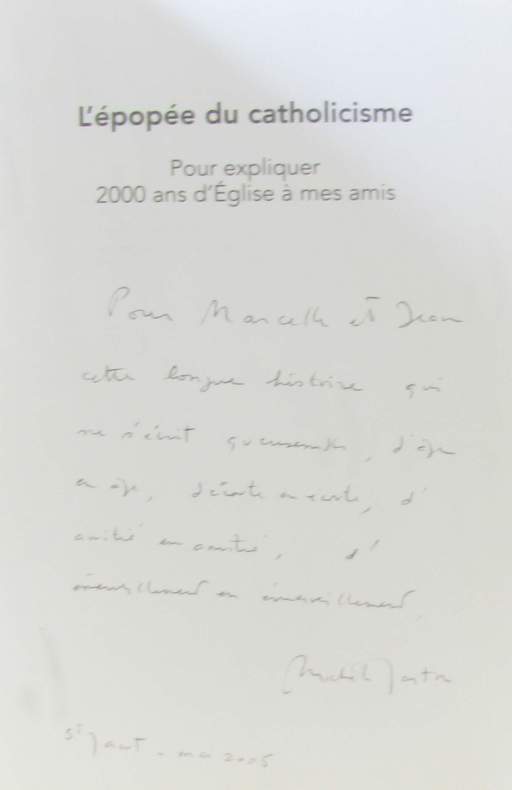 L'épopée du catholicisme
Pour expliquer
2000 ans d'Église à mes amis
Pour Marcelle et Jean
cette longue histoire qui
ne s'écrit qu'ensemble, d'âge
en âge, d'écoute en écoute, d'
amitié en amitié, d'
émerveillement en émerveillement.
Michel
mai 2005